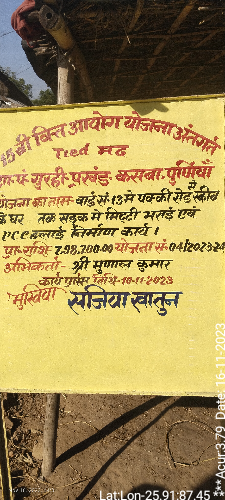 15वीं वित्त आयोग योजना अंतर्गत
Tied मद
ग्रा०पं० गुरही-प्रखंड-कसबा-पूर्णियाँ
योजना का नाम- वार्ड सं०-13 मे पक्की रोड से
के घर तक सड़क मे मिट्टी भराई एवं
PCC ढलाई निर्माण कार्य।
प्रा०राशि-7,98,700=00 योजना सं-04/2023-24
अभिकर्ता- श्री मुणाल कुमार
कार्य प्रा० तिथि-10-11-2023
मुखिया साजिया खातुन
Lat:Lon-25.91:87.45
***Acur 3.79 Date: 16-11-2023